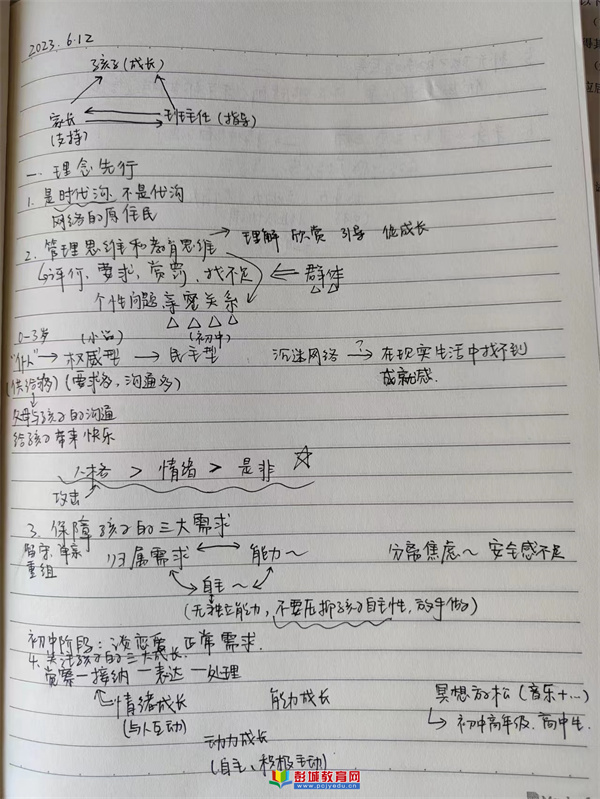 2023.6.12
孩子(成长)
家长
(支持)
班主任(指导)
一. 理念先行
1. 是时代沟 不是代沟
网络的原住民
2. 管理思维和教育思维 → 理解 欣赏 引导 促成长
↳评价、要求、赏罚、找不足 ⇐ 群体
个性问题 亲密关系
0-3岁 (小学) (初中)
→ 权威型 → 民主型
(供给多) (要求多,沟通多)
沉迷网络 ?→ 在现实生活中找不到
成就感.
父母与孩子的沟通
给孩子带来快乐
人格 > 情绪 > 是非 ☆
攻击
3. 保障孩子的三大需求
留守、单亲
重组
归属需求 ↔ 能力~
分离焦虑~ 安全感不足
自主~
(无独立能力,不要压抑孩子自主性,放手做)
初中阶段:谈恋爱 正常需求.
4. 关注孩子的三大成长.
觉察—接纳—表达—处理
情绪成长
(与人互动)
能力成长
冥想放松(音乐+...)
↳ 初中高年级、高中生.
动力成长
(自主、积极主动)
彭城教育网
www.pcjyedu.cn